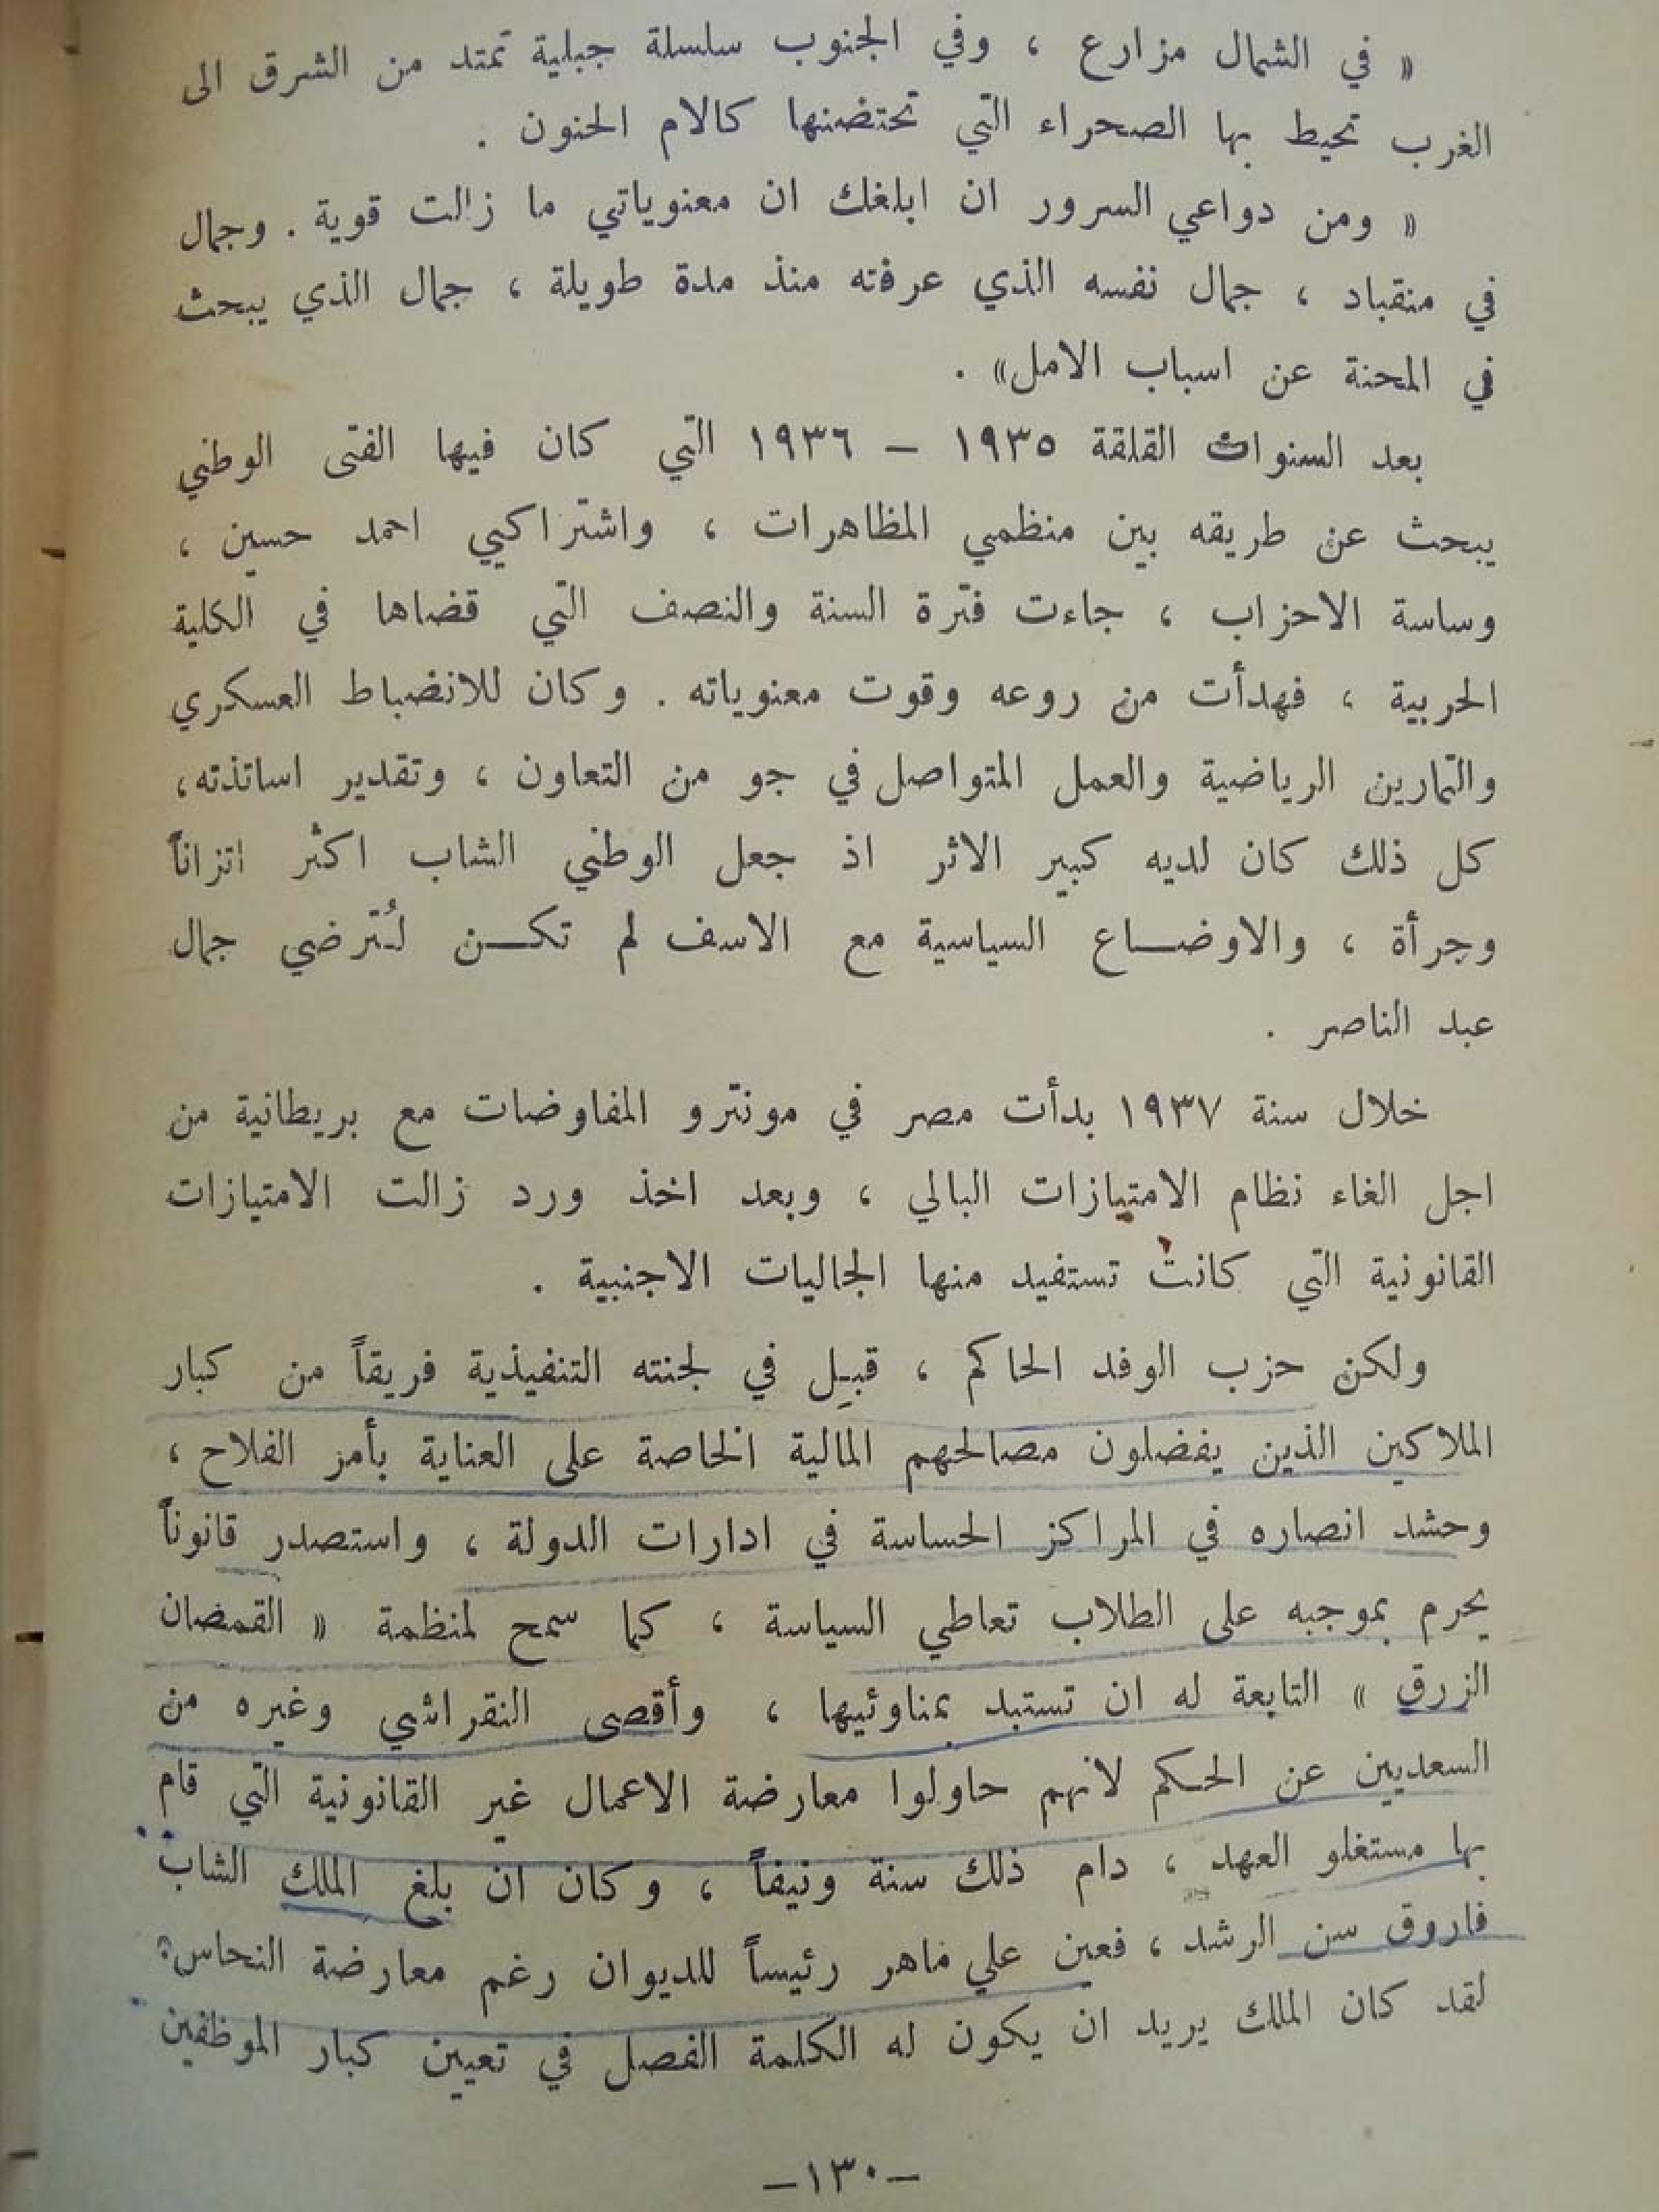 « في الشمال مزارع ، وفي الجنوب سلسلة جبلية تمتد من الشرق الى
الغرب تحيط بها الصحراء التي تحتضنها كالام الحنون .
« ومن دواعي السرور ان ابلغك ان معنوياتي ما زالت قوية . وجمال
في منقباد ، جمال نفسه الذي عرفته منذ مدة طويلة ، جمال الذي يبحث
في المحنة عن اسباب الامل» .
بعد السنوات القلقة ١٩٣٥ – ١٩٣٦ التي كان فيها الفتى الوطني
يبحث عن طريقه بين منظمي المظاهرات ، واشتراكيي احمد حسين ،
وساسة الاحزاب ، جاءت فترة السنة والنصف التي قضاها في الكلية
الحربية ، فهدأت من روعه وقوت معنوياته . وكان للانضباط العسكري
والتمارين الرياضية والعمل المتواصل في جو من التعاون ، وتقدير اساتذته،
كل ذلك كان لديه كبير الاثر اذ جعل الوطني الشاب اكثر اتزاناً
وجرأة ، والاوضـاع السياسية مع الاسف لم تكـن لتُرضي جمال
عبد الناصر .
خلال سنة ١٩٣٧ بدأت مصر في مونترو المفاوضات مع بريطانية من
اجل الغاء نظام الامتيازات البالي ، وبعد اخذ ورد زالت الامتيازات
القانونية التي كانت تستفيد منها الجاليات الاجنبية .
ولكن حزب الوفد الحاكم ، قبِل في لجنته التنفيذية فريقاً من كبار
الملاكين الذين يفضلون مصالحهم المالية الخاصة على العناية بأمر الفلاح ،
وحشد انصاره في المراكز الحساسة في ادارات الدولة ، واستصدر قانوناً
يحرم بموجبه على الطلاب تعاطي السياسة ، كما سمح لمنظمة « القمضان
الزرق » التابعة له ان تستبد بمناوئيها ، وأقصى النقراشي وغيره من
السعديين عن الحكم لانهم حاولوا معارضة الاعمال غير القانونية التي قام
بها مستغلو العهد ، دام ذلك سنة ونيفاً ، وكان ان بلغ الملك الشاب
فاروق سن الرشد ، فعين علي ماهر رئيساً للديوان رغم معارضة النحاس،
لقد كان الملك يريد ان يكون له الكلمة الفصل في تعيين كبار الموظفين
–١٣٠–